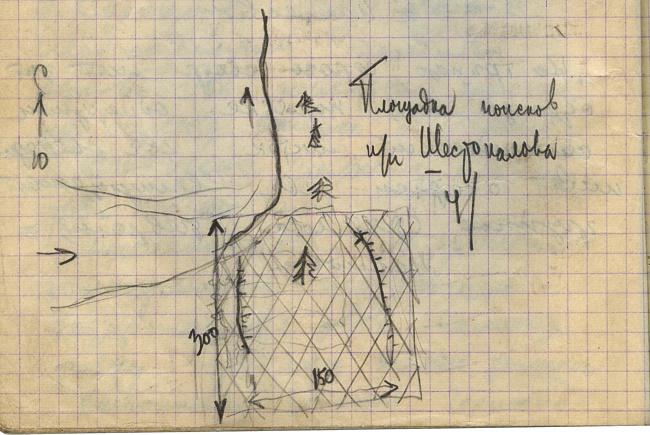 С
Ю
Площадка поисков
п/п Шестопалова
Ч/
300
150